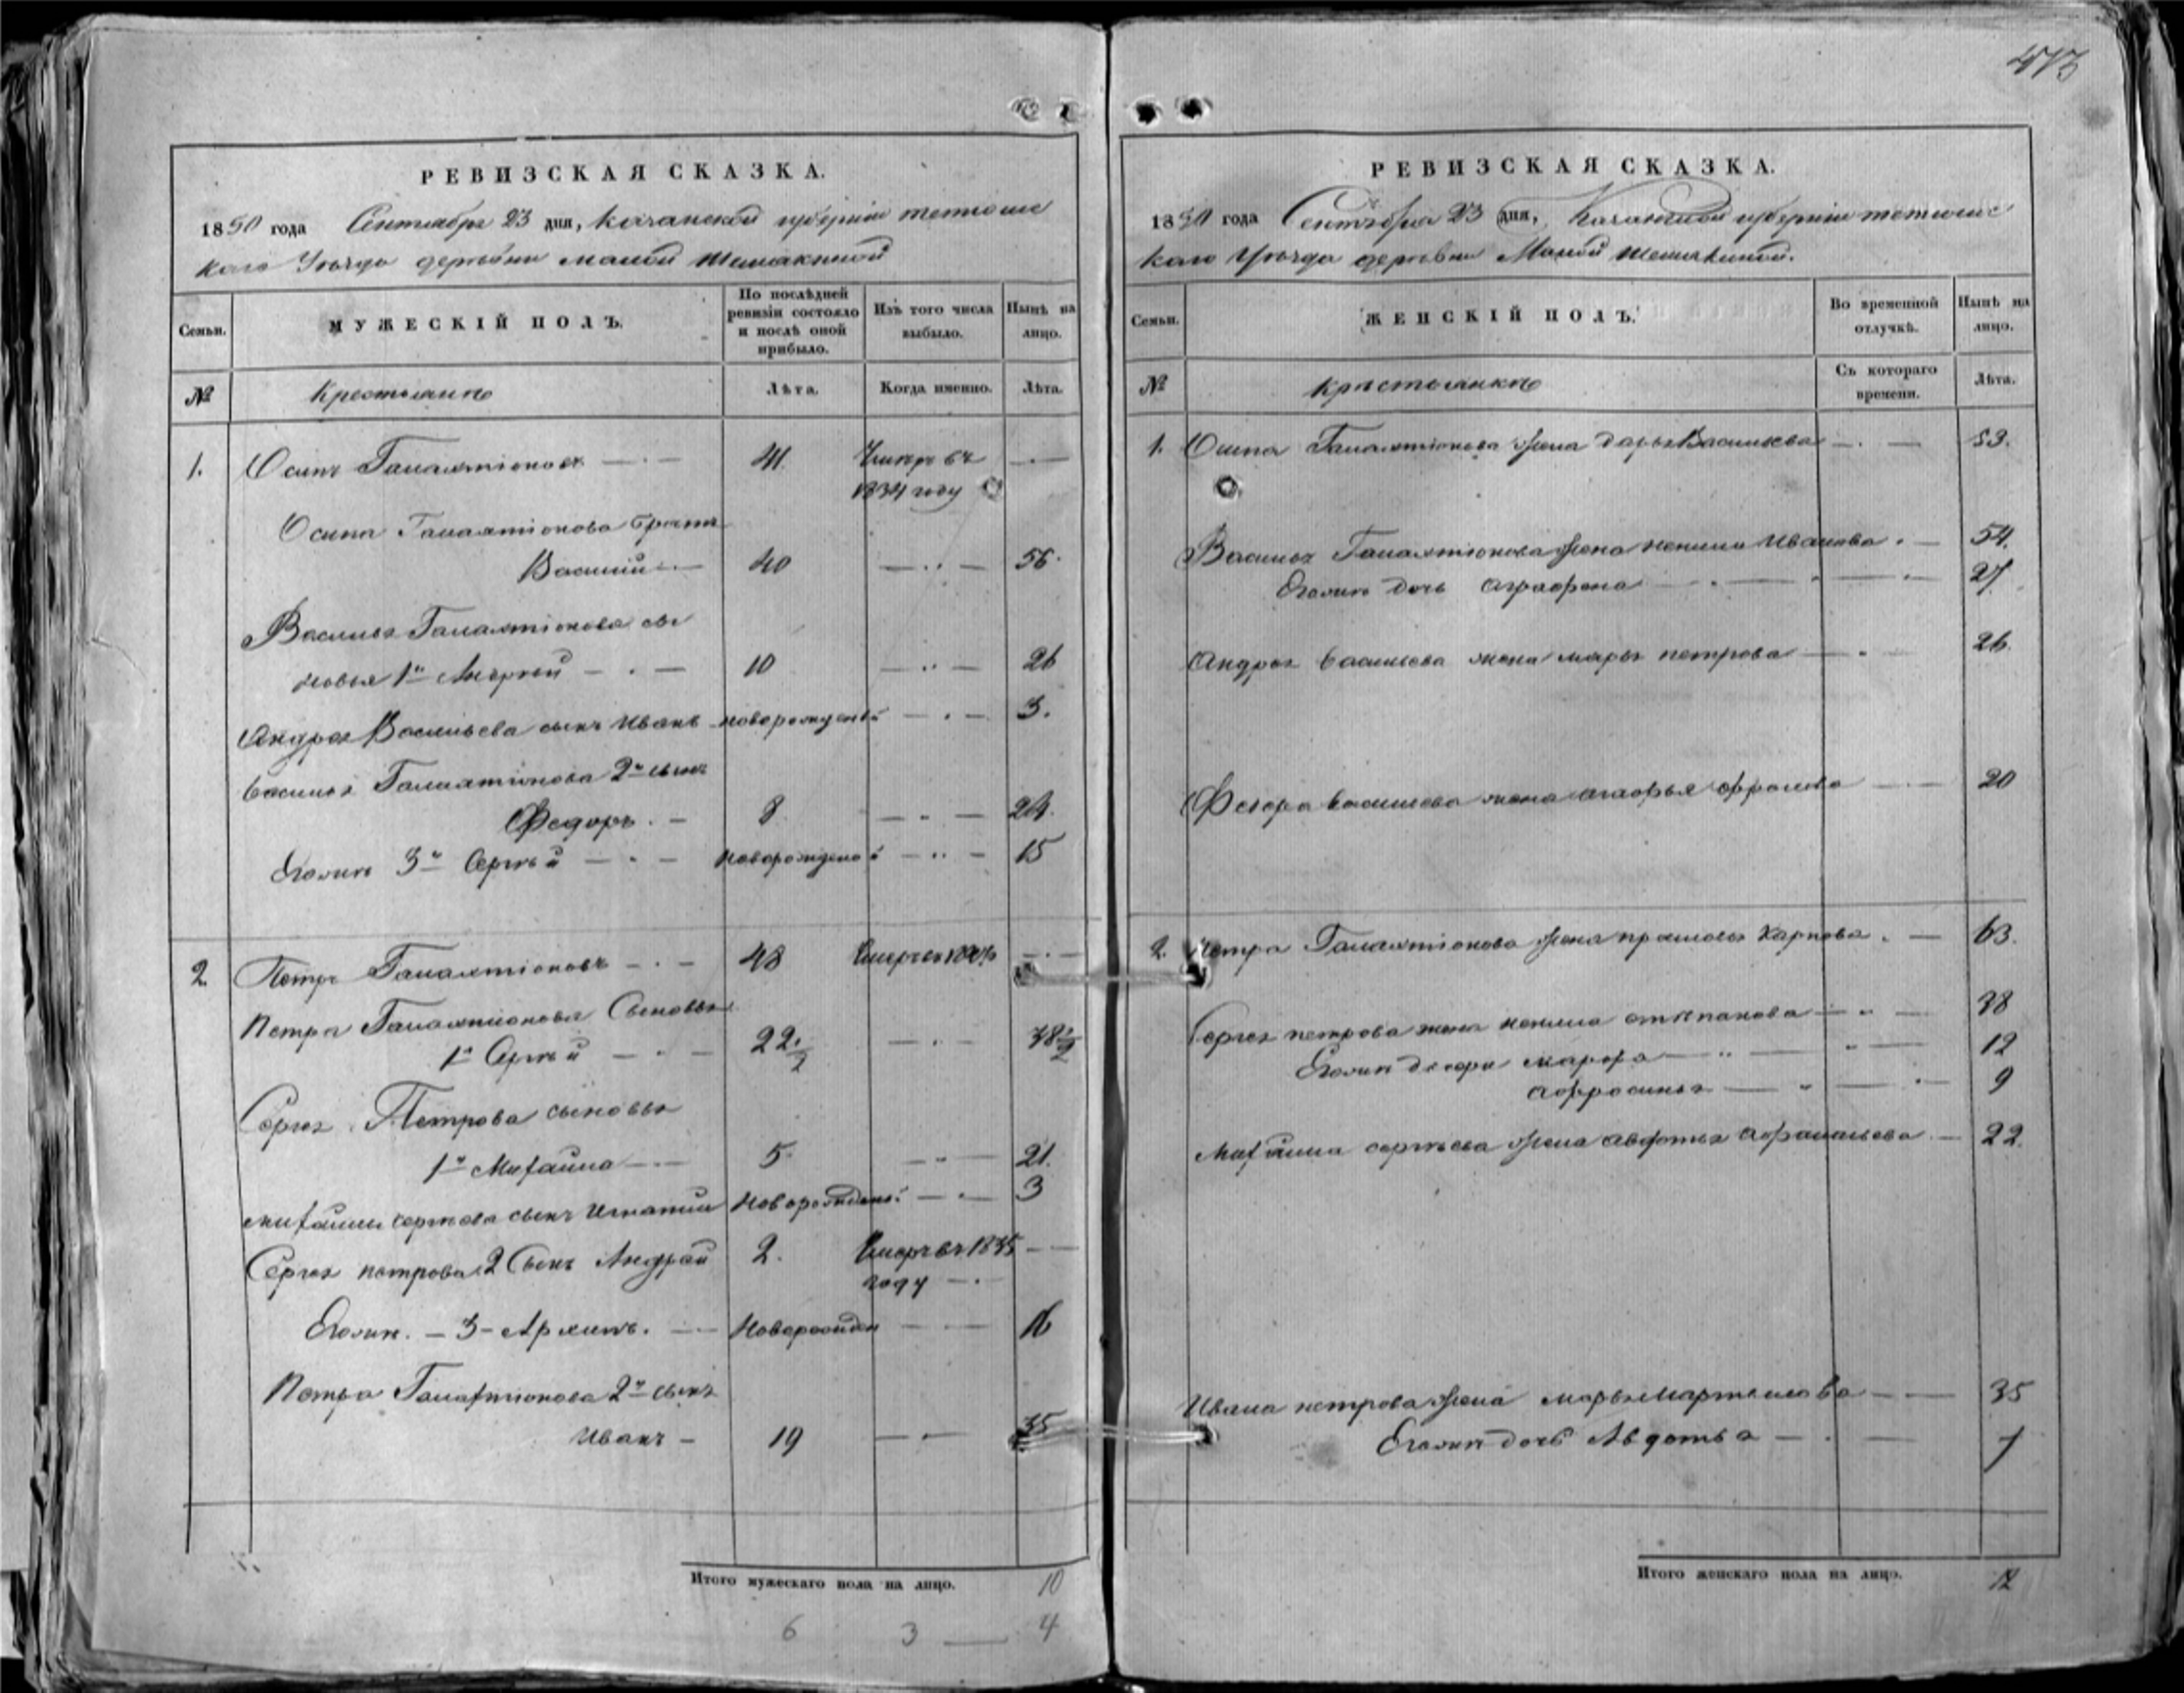 473
РЕВИЗСКАЯ СКАЗКА.
1850 года Сентября 23 дня, Казанской губернiи тетюшс
каго Уѣзда деревни малой Шемякиной
Семьи.
МУЖЕСКІЙ ПОЛЪ.
По послѣдней ревизіи состояло и послѣ оной прибыло.
Изъ того числа выбыло.
Нынѣ на лицо.
№
Крестьянъ
Лѣта.
Когда именно.
Лѣта.
1. Осипъ Галахтіоновъ 41 Умеръ въ
1834 году
Осипа Галахтіонова братъ
Василий 40 56.
Василья Галахтіонова сы
новья 1й Андрей 10 26
Андрея Васильева сынъ Иванъ новорожденъ 3.
Василья Галахтионова 2й сынъ
Федоръ. 8. 24.
Егожъ 3й Сергѣй новорожденой 15
2. Петръ Галахтіоновъ 48 Умеръ
Петра Галахтионова Сыновья
1й Сергѣй 22 1/2 38 1/2
Сергея Петрова сыновья
1й Михаила 5. 21.
михаилы сергеева сынъ Игнатий Новорожденой 3
Сергея петрова 2 Сынъ Андрей 2. Умеръ въ 1835
году
Егожъ. 3 Архипъ. Новорожден 16
Петра Галахтионова 2й сынъ
Иванъ 19 35
Итого мужескаго пола на лицо. 10
6 3 4
РЕВИЗСКАЯ СКАЗКА.
1850 года Сентября 23 дня, Казанской губерніи тетюшс
каго Уѣзда деревни Малой шемякиной.
Семьи.
ЖЕНСКІЙ ПОЛЪ.
Во временной отлучкѣ.
Нынѣ на лицо.
№
крестьянкъ
Съ котораго времени.
Лѣта.
1. Осипа Галахтіонова жена Дарья Васильева 53.
Василья Галахтіонова жена ненила Иванова. 54.
Егожъ дочь аграфена 27
Андрея васильева жена марья петрова 26.
Федора васильева жена фролова 20
2. Петра Галахтіонова жена прасковья Карпова. 63.
Сергея петрова жена ненила степанова 38
Егожъ дочери марфа 12
афросинья 9
Михаила сергѣева жена авдотья афанасьева 22.
Ивана петрова жена марья Мартынова 35
Егожъ дочь Авдотья 7
Итого женскаго пола на лицо. 12